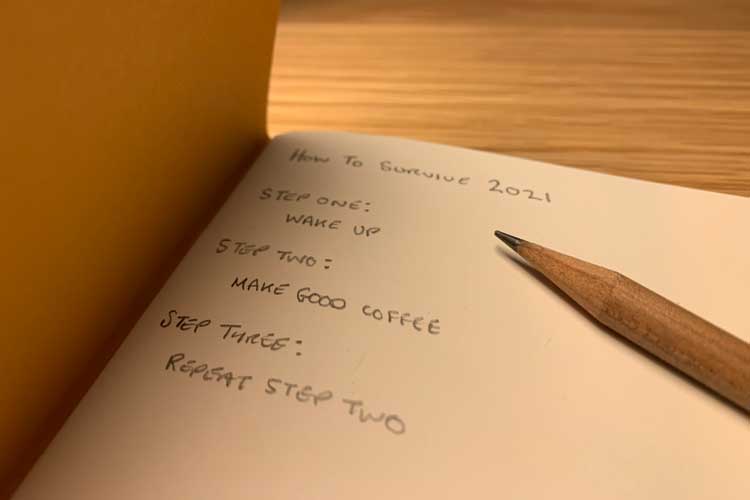 How To Survive 2021
STEP ONE:
WAKE UP
STEP TWO:
MAKE GOOD COFFEE
STEP THREE:
REPEAT STEP TWO